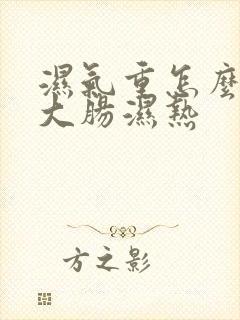 濕氣重怎麼
大腸濕熱
方之影